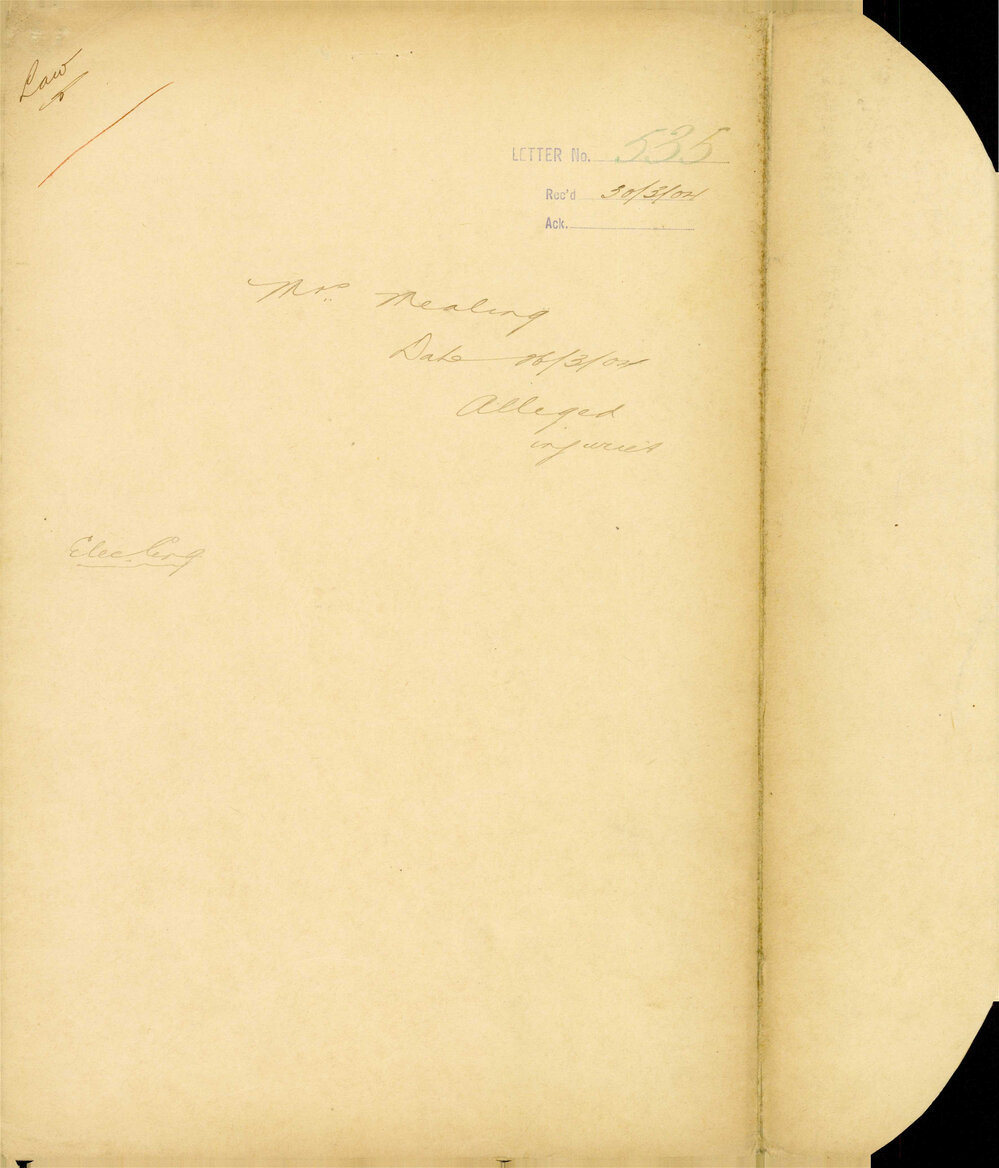 Law
LETTER No. 535
Rec'd 30/3/04
Ack.
Mrs. Mealing
Date 26/3/04
Alleged
injuries
Elec. Eng